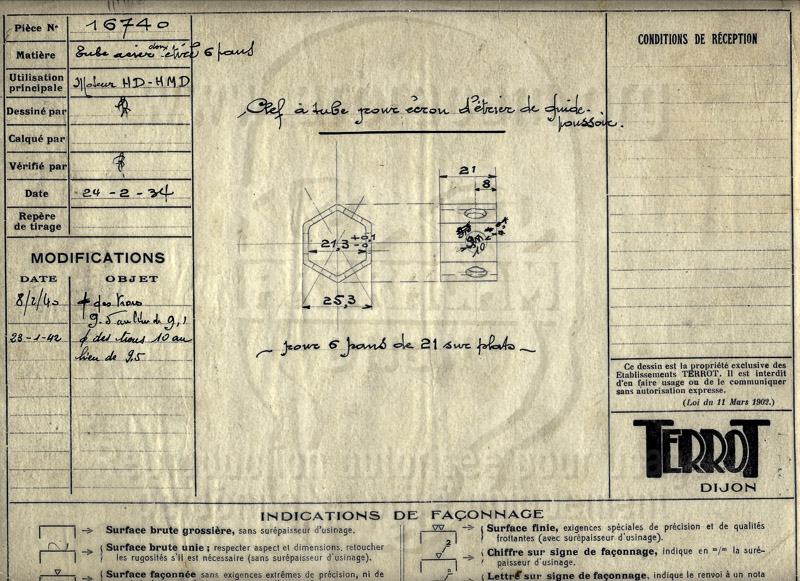 Pièce N° 16740
Matière Tube acier doux étiré 6 pans
Utilisation principale Moteur HD-HMD
Dessiné par
Calqué par
Vérifié par
Date 24-2-34
Repère de tirage
MODIFICATIONS
DATE OBJET
8/2/40 ϕ des trous
9.5 au lieu de 9,1
23-1-42 ϕ des trous 10 au
lieu de 9,5
Clef à tube pour écrou d'étrier de guide-
poussoir.
21
8
21,3 +0,1
25,3
10
pour 6 pans de 21 sur plats
CONDITIONS DE RÉCEPTION
Ce dessin est la propriété exclusive des
Etablissements TERROT. Il est interdit
d'en faire usage ou de le communiquer
sans autorisation expresse.
(Loi du 11 Mars 1902.)
TERROT
DIJON
INDICATIONS DE FAÇONNAGE
Surface brute grossière, sans surépaisseur d'usinage.
Surface brute unie ; respecter aspect et dimensions, retoucher
les rugosités s'il est nécessaire (sans surépaisseur d'usinage).
Surface façonnée sans exigences extrêmes de précision, ni de
Surface finie, exigences spéciales de précision et de qualités
frottantes (avec surépaisseur d'usinage).
2
Chiffre sur signe de façonnage, indique en m/m la suré-
paisseur d'usinage.
Lettre sur signe de façonnage, indique le renvoi à un nota